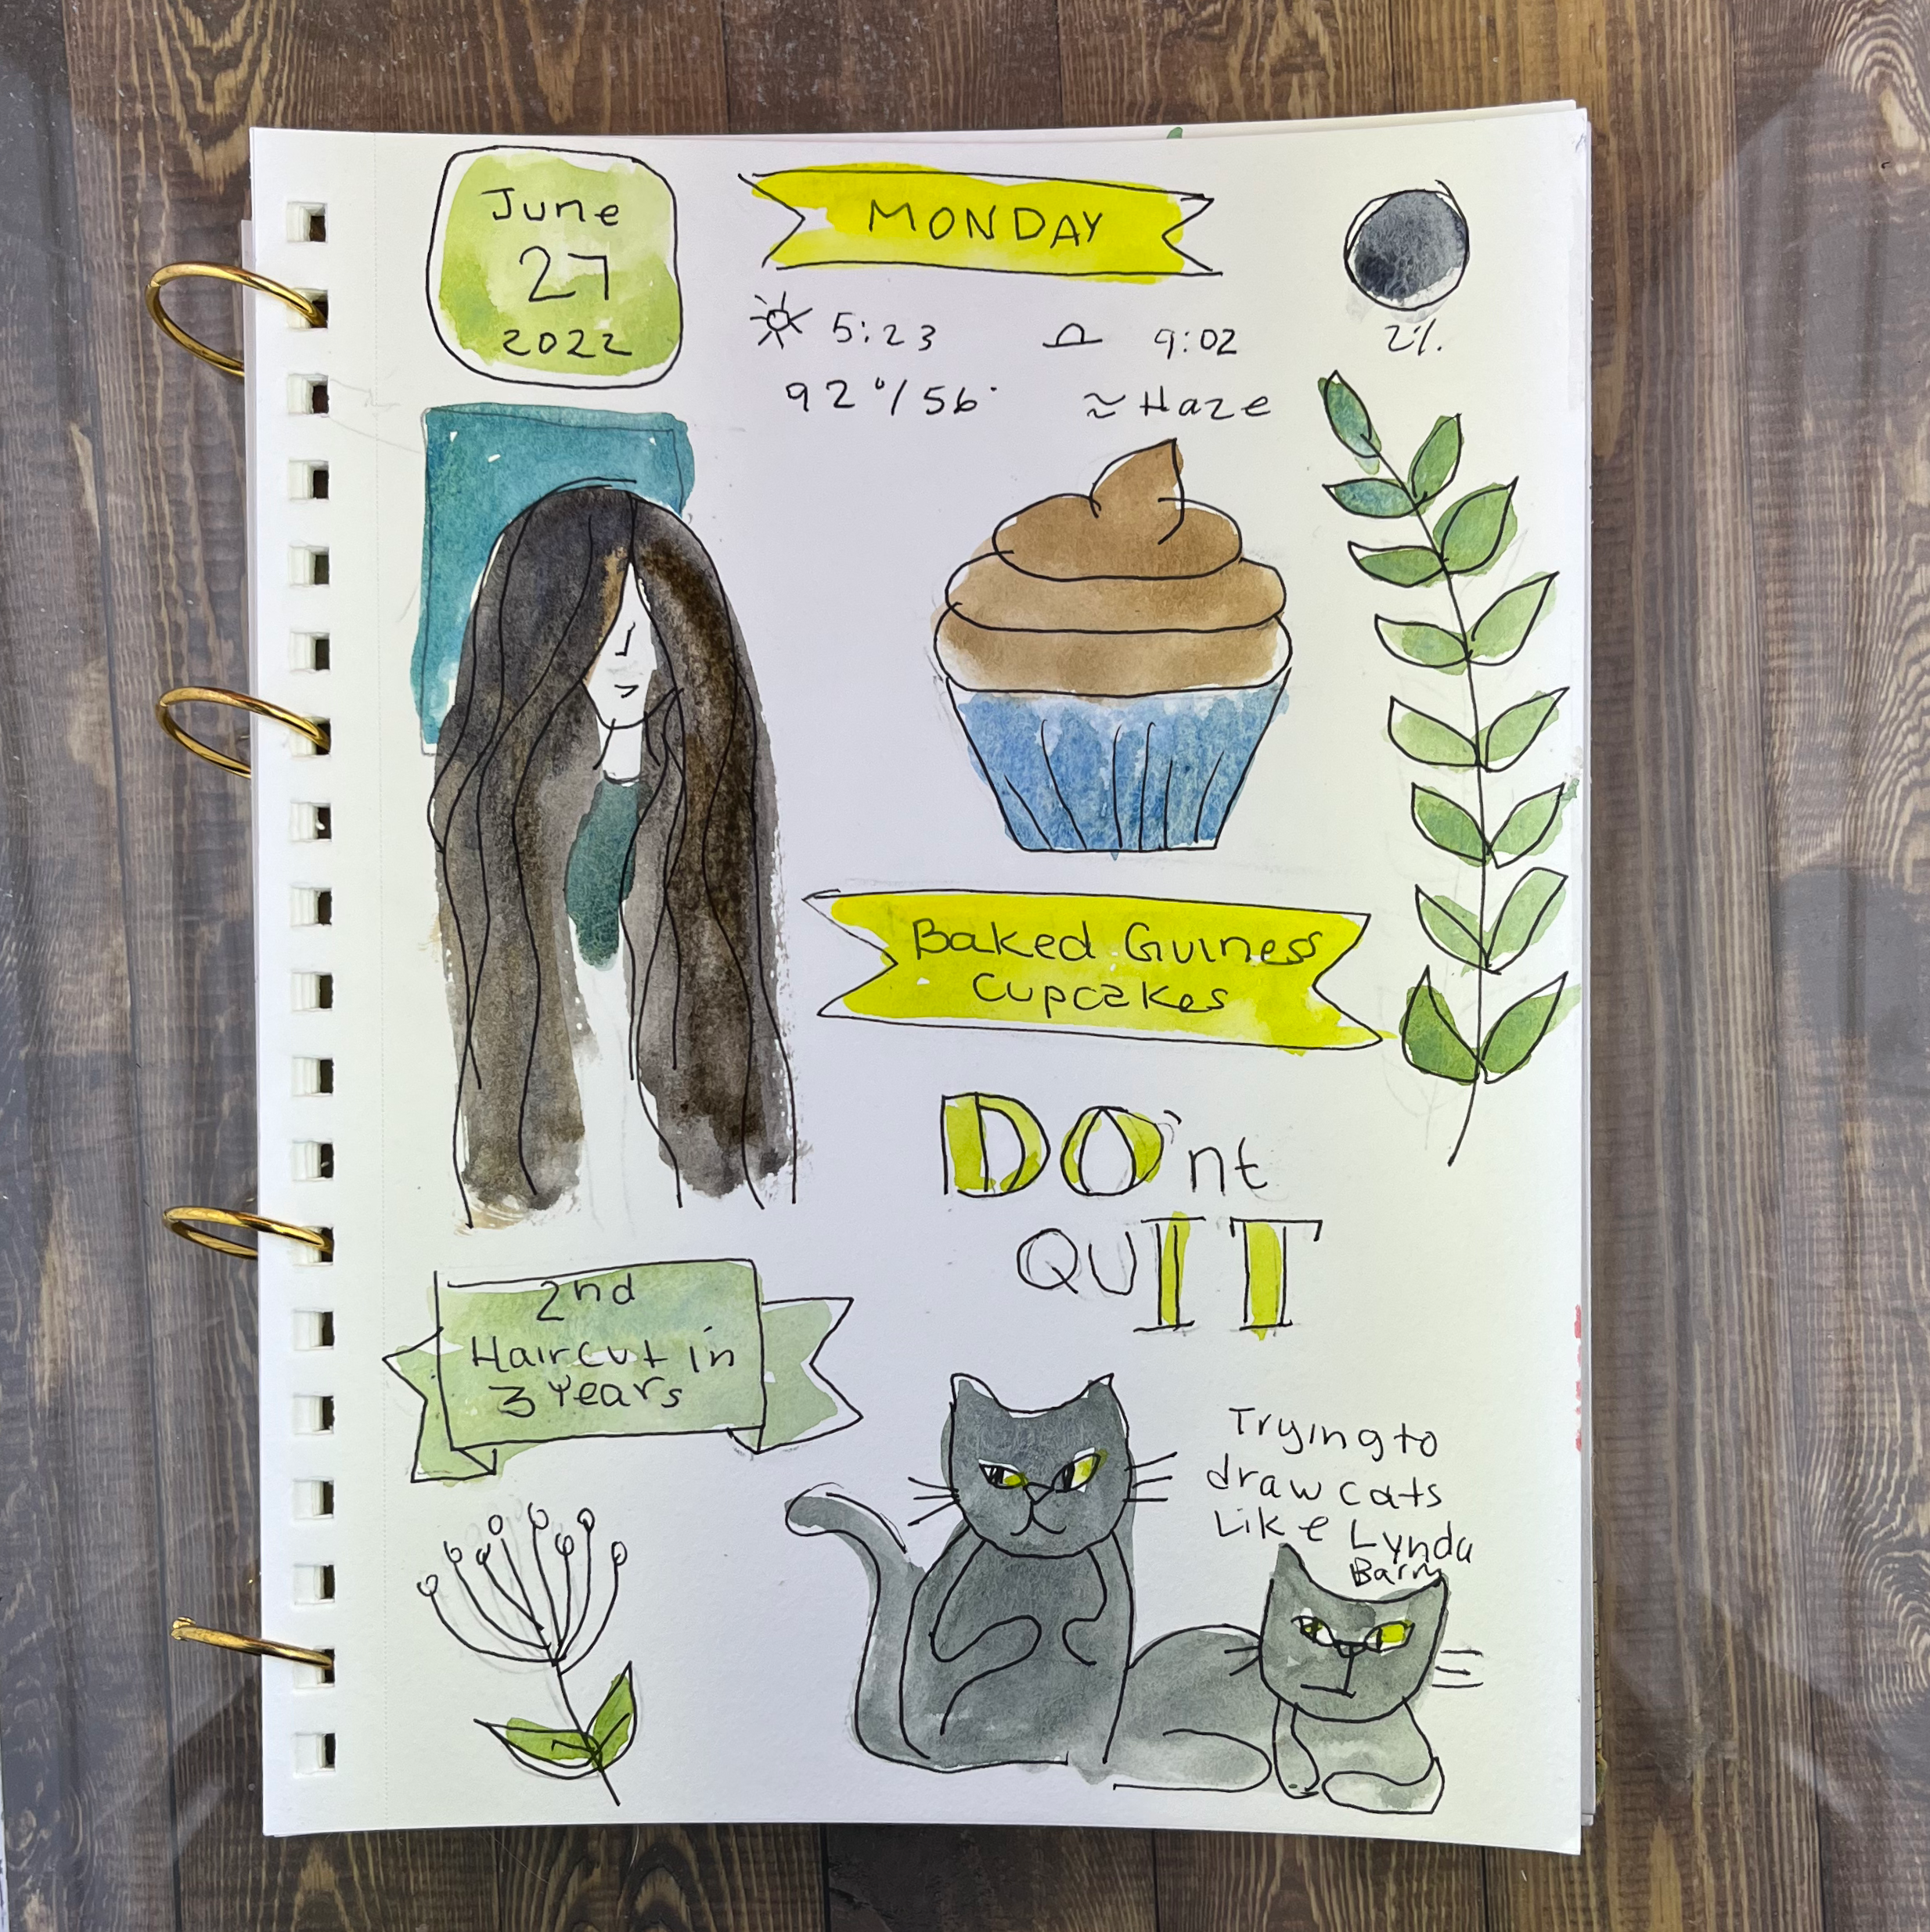 June
27
2022
MONDAY
5:23
9:02
2%.
92°/56°
≈ Haze
Baked Guiness
Cupcakes
DO'nt
QUIT
2nd
Haircut in
3 Years
Trying to
draw cats
Like Lynda
Barry